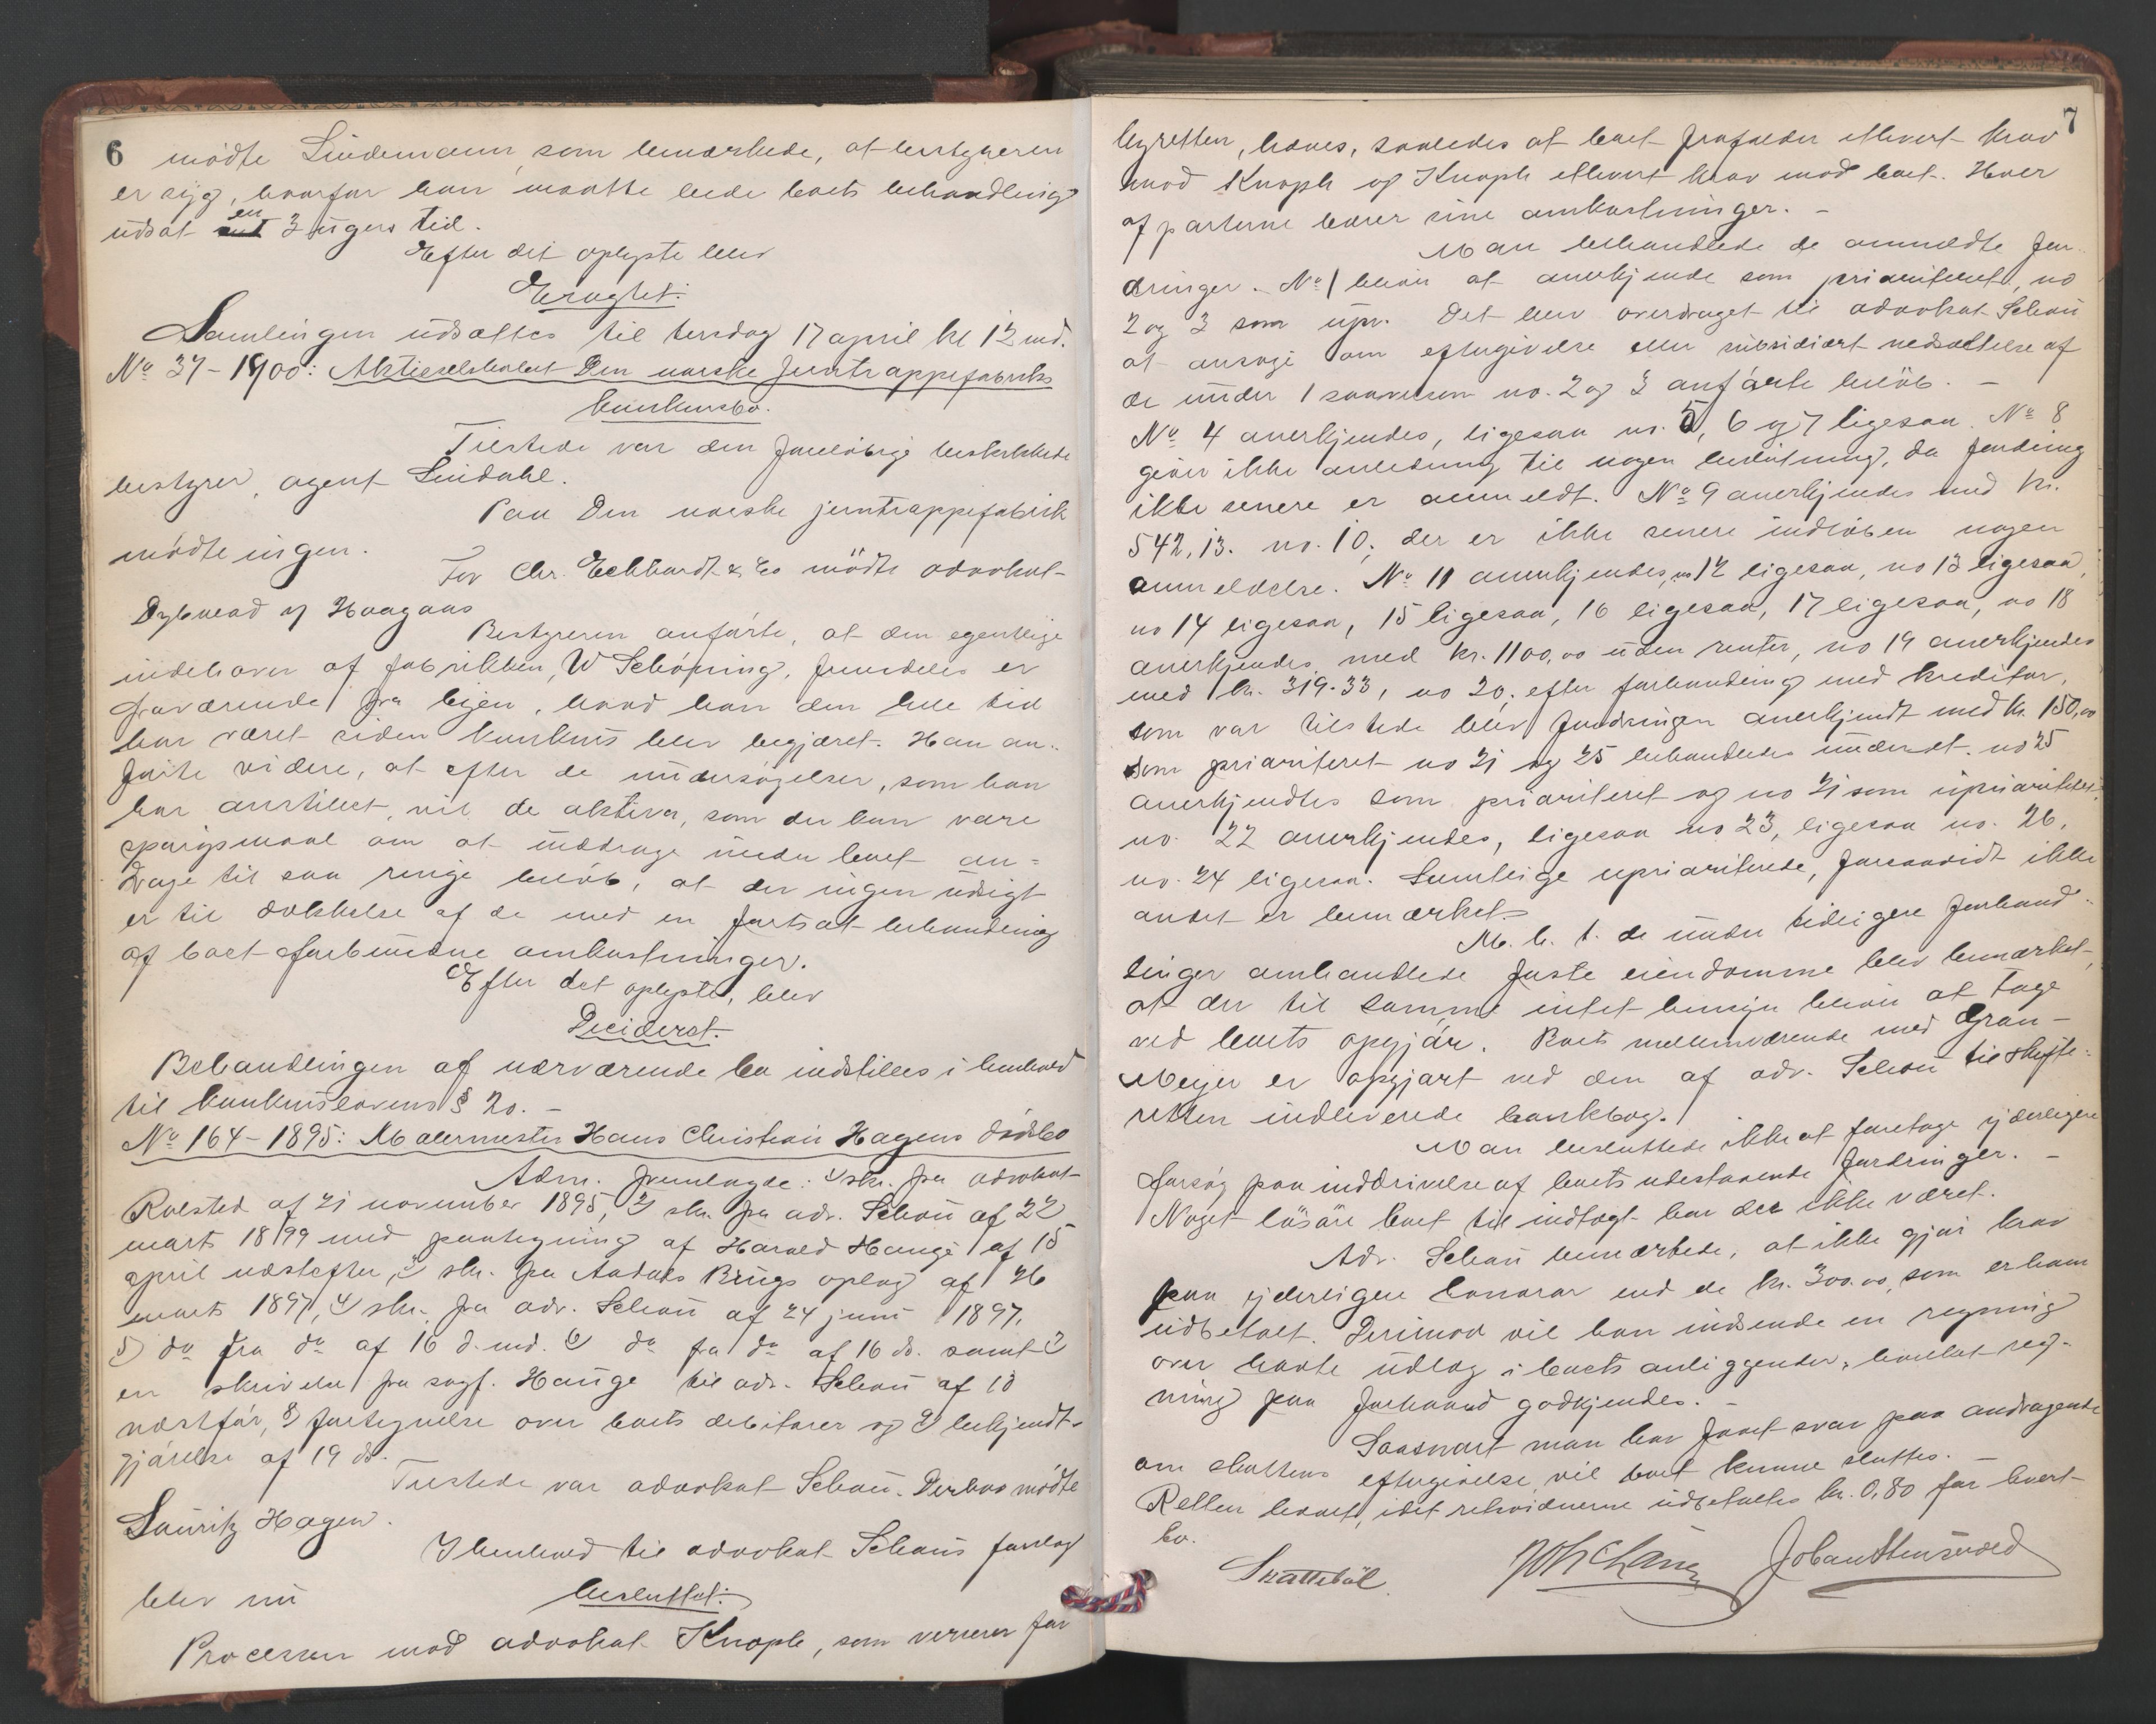 6
mødte Lindemann, som bemærkede, at bestyreren
er syg, hvorfor han maatte bede boets behandling
udsat en 3 ugers tid.
Efter det oplyste blev
Eragtet:
Samlingen udsættes til tirsdag 17 april kl 12 md.
No 37-1900: Aktieselskabet Den norske Jerntrappefabriks
konkursbo.
Tilstede var den foreløbige beskikkede
bestyrer, agent Lindahl.
Paa Den norske jerntrappefabrik
mødte ingen.
For Chr. Eckhardt & Co mødte advokat
Dybwad og Haagaas
Bestyreren anførte, at den egentlige
indehaver af fabrikken, W Schøning, fremdeles er
fraværende fra byen, hvad han den hele tid
har været siden konkurs blev begjæret. Han an-
førte videre, at efter de undersøgelser, som han
har anstillet, vil de aktiva, som der kan være
spørgsmaal om at inddrage under boet an=
drage til saa ringe beløb, at der ingen udsigt
er til dækkelse af de med en fortsat behandling
af boet forbundne omkostninger.
Efter det oplyste, blev
Decideret:
Behandlingen af nærværende bo indstilles i henhold
til konkurslovens § 20. -
No 164-1895: Malermester Hans Christian Hagens dødsbo
Adm. fremlagde: 1) skr. fra advokat
Rolsted af 21 november 1895, 2) skr. fra adv. Schou af 22
marts 1899 med paategning af Harald Hauge af 15
april næstefter, 3) skr. fra Anders Brugs oplag af 26
marts 1897, 4) skr. fra adv. Schou af 24 juni 1897.
5) do fra do af 16 d. md. 6) do fra do af 16 ds. samt 7)
en skrivelse fra sagf. Hauge til adv. Schou af 13
næstfør, 8) fortegnelse over boets debitorer og 9) bekjendt-
gjørelse af 19 ds.
Tilstede var advokat Schou. Derhos mødte
Lauritz Hagen.
I henhold til advokat Schous forslag
blev nu
besluttet:
Processen mod advokat Knoph, som verserer for
7
byretten, hæves, saaledes at boet frafalder ethvert krav
mod Knoph og Knoph ethvert krav mod boet. Hver
af parterne bærer sine omkostninger. -
Man behandlede de anmeldte for-
dringer. No 1 bliver at anerkjende som prioriteret, no
2 og 3 som upr. Det blev overdraget til advokat Schou
at ansøge om eftergivelse eller subsidiært nedsættelse af
de under 1 saavelsom no. 2 og 3 anførte beløb. -
No 4 anerkjendes, ligesaa no. 5, 6 og 7 ligesaa. No 8
giver ikke anledning til nogen beslutning, da fordring
ikke senere er anmeldt. No 9 anerkjendes med kr.
542,13. no. 10; der er ikke senere indløben nogen
anmeldelse. No 11 anerkjendes, no 12 ligesaa, no 13 ligesaa,
no 14 ligesaa, 15 ligesaa, 16 ligesaa, 17 ligesaa, no 18
anerkjendes med kr. 1100,00 uden renter, no 19 anerkjendes
med kr. 319.33, no 20; efter forhandling med kreditor,
som var tilstede blev fordringen anerkjendt med kr. 150,00
som prioriteret no 21 og 25 behandledes under et. no 25
anerkjendtes som prioriteret og no 21 som uprioriteret;
no. 22 anerkjendes, ligesaa no 23, ligesaa no. 26,
no. 24 ligesaa. Samtlige uprioriterede, forsaavidt ikke
andet er bemærket.
M. h. t. de under tidligere forhand-
linger omhandlede faste eiendomme blev bemærket,
at der til samme intet hensyn bliver at tage
ved boets opgjør. Boets mellemværende med Gran-
Meyer er opgjort ved den af adv. Schou til skifte-
retten indleverede bankbog.
Man besluttede ikke at foretage yderligere
forsøg paa inddrivelse af boets udestaaende fordringer. -
Noget løsøre boet til indtægt har der ikke været.
Adv. Schou bemærkede, at ikke gjør krav
paa yderligere honorar end de kr. 300.00, som er ham
udbetalt. Derimod vil han indsende en regning
over havte udlæg i boets anliggender, hvilket reg-
ning paa forhaand godkjendes. -
Saasnart man har faaet svar paa andragende
om skattens eftergivelse vil boet kunne sluttes. -
Retten hævet, idet retsvidnerne udbetaltes kr. 0,80 for hvert
bo.
Skattebøl Johan Stensrud